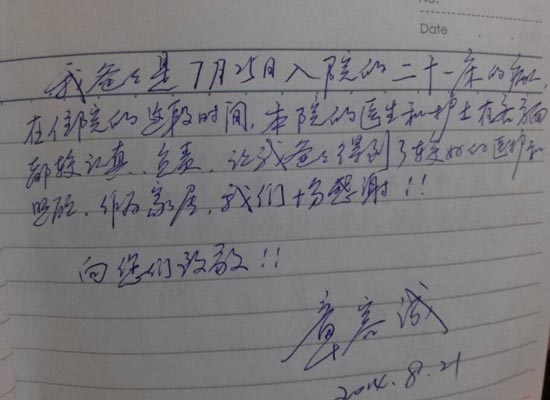 No.
Date
我爸爸是7月25日入院的二十一床的病人,
在住院的这段时间,本院的医生和护士在各方面
都较认真、负责,让我爸爸得到了较好的医护和
照顾,作为家属,我们十分感谢!!
向您们致敬!!
2014.8.21